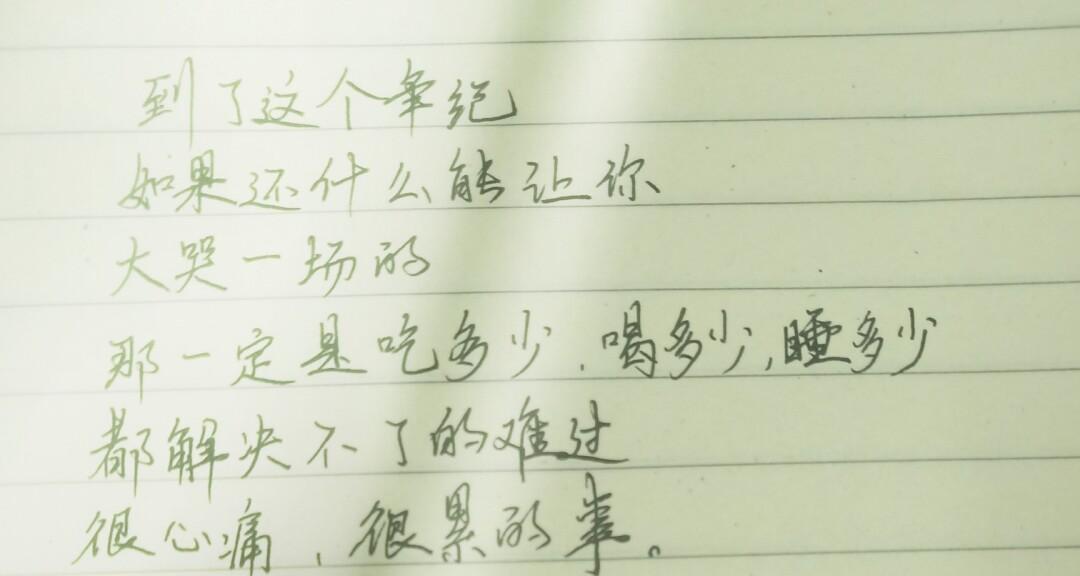 到了这个年纪
如果还什么能让你
大哭一场的
那一定是吃多少，喝多少，睡多少
都解决不了的难过
很心痛，很累的事。